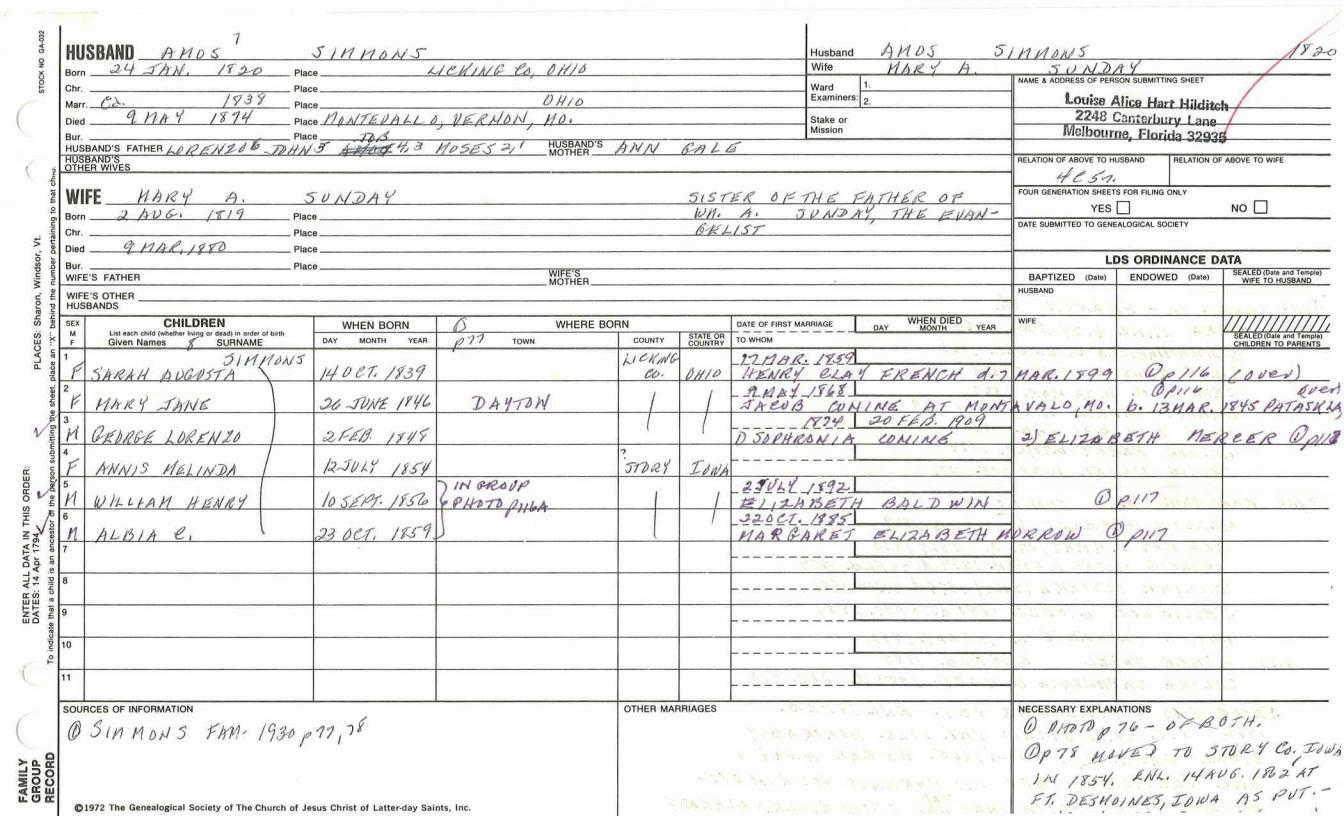 STOCK NO GA-032
HUSBAND AMOS 7 SIMMONS
Born 24 JAN. 1820 Place LICKING Co, OHIO
Chr. Place
Marr. Ca. 1838 Place OHIO
Died 9 MAY 1874 Place MONTEVALLO, VERNON, MO.
Bur. Place
HUSBAND'S FATHER LORENZO 6 JOHN 5 JOB 4, 3 MOSES 2, 1 HUSBAND'S MOTHER ANN GALE
HUSBAND'S OTHER WIVES
WIFE MARY A. SUNDAY SISTER OF THE FATHER OF
Born 2 AUG. 1819 Place WM. A. SUNDAY, THE EVAN-
Chr. Place GELIST
Died 9 MAR, 1880 Place
Bur. Place
WIFE'S FATHER WIFE'S MOTHER
WIFE'S OTHER HUSBANDS
Husband AMOS SIMMONS 1820
Wife MARY A. SUNDAY
Ward Examiners: 1. 2.
Stake or Mission
NAME & ADDRESS OF PERSON SUBMITTING SHEET
Louise Alice Hart Hilditch
2248 Canterbury Lane
Melbourne, Florida 32935
RELATION OF ABOVE TO HUSBAND RELATION OF ABOVE TO WIFE
FOUR GENERATION SHEETS FOR FILING ONLY
YES NO
DATE SUBMITTED TO GENEALOGICAL SOCIETY
LDS ORDINANCE DATA
BAPTIZED (Date) ENDOWED (Date) SEALED (Date and Temple) WIFE TO HUSBAND
HUSBAND
WIFE
SEALED (Date and Temple) CHILDREN TO PARENTS
SEX M F
CHILDREN
List each child (whether living or dead) in order of birth
Given Names SURNAME
WHEN BORN
DAY MONTH YEAR
WHERE BORN
p77 TOWN COUNTY STATE OR COUNTRY
DATE OF FIRST MARRIAGE
TO WHOM
WHEN DIED
DAY MONTH YEAR
SIMMONS
1 F SARAH AUGUSTA 14 OCT. 1839 LICKING Co. OHIO 17 MAR. 1859
HENRY CLAY FRENCH d. 7 MAR. 1899 ① p116 (over)
2 F MARY JANE 26 JUNE 1846 DAYTON 9 MAY 1868 ① p116 over
JACOB CONINE AT MONTAVALO, MO. b. 13 MAR. 1845 PATASKLA,
3 M GEORGE LORENZO 2 FEB. 1848 1874 20 FEB. 1909
1) SOPHRONIA CONINE 2) ELIZABETH MERCER ① p118
4 F ANNIS MELINDA 12 JULY 1854 ? STORY IOWA
5 M WILLIAM HENRY 10 SEPT. 1856 IN GROUP PHOTO p116A JULY 1892
ELIZABETH BALDWIN ① p117
6 M ALBIA C. 23 OCT. 1859 22 OCT. 1885
MARGARET ELIZABETH MORROW ① p117
7
8
9
10
11
SOURCES OF INFORMATION
① SIMMONS FAM- 1930 p77,78
OTHER MARRIAGES
NECESSARY EXPLANATIONS
① PHOTO p76 - OF BOTH.
① p78 MOVED TO STORY Co. IOWA
IN 1854. ENL. 14 AUG. 1862 AT
FT. DESMOINES, IOWA AS PVT.-
©1972 The Genealogical Society of The Church of Jesus Christ of Latter-day Saints, Inc.
FAMILY GROUP RECORD
ENTER ALL DATA IN THIS ORDER:
DATES: 14 Apr 1794
PLACES: Sharon, Windsor, Vt.
To indicate that a child is an ancestor of the person submitting the sheet, place an "X" behind the number pertaining to that child.